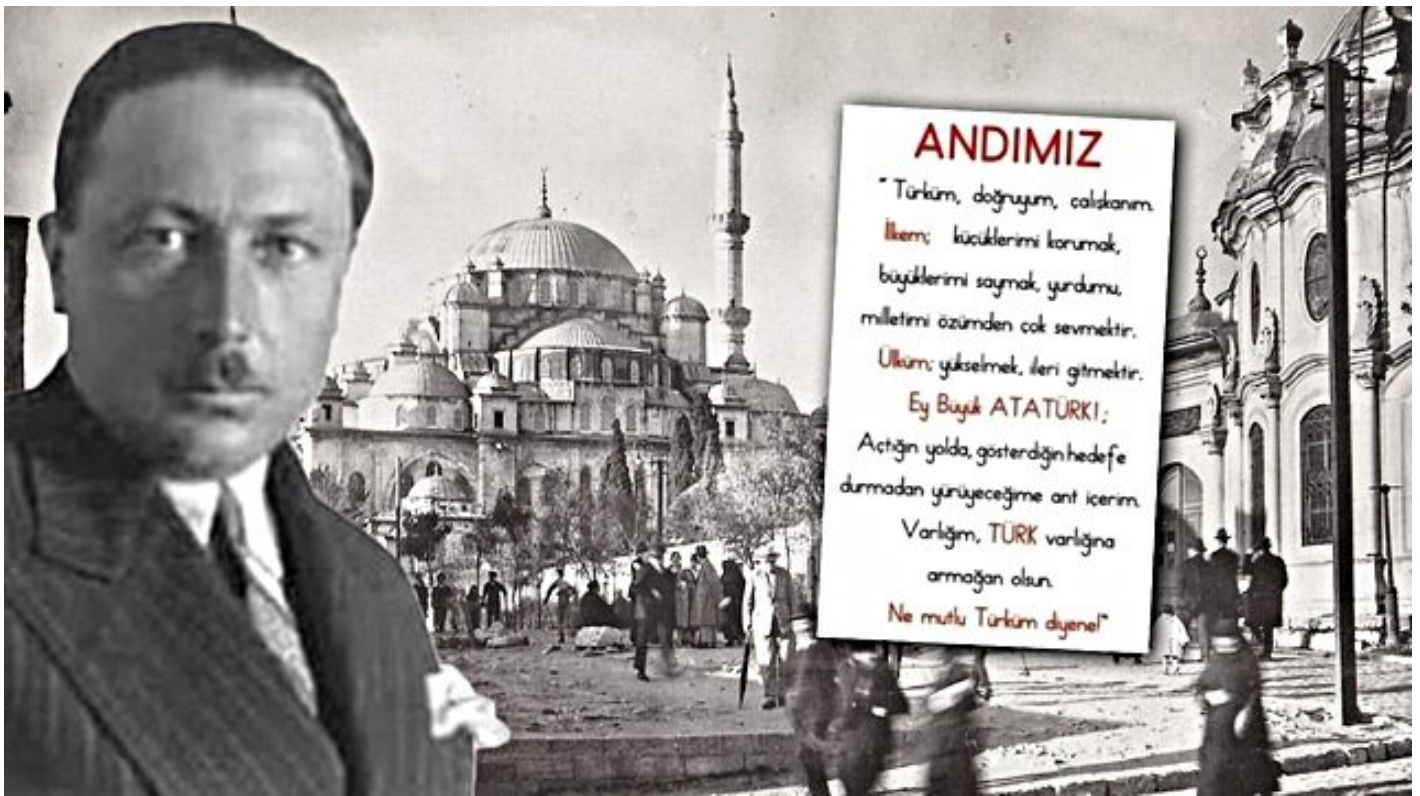 ANDIMIZ
"Türküm, doğruyum, çalışkanım.
İlkem; küçüklerimi korumak,
büyüklerimi saymak, yurdumu,
milletimi özümden çok sevmektir.
Ülküm; yükselmek, ileri gitmektir.
Ey Büyük ATATÜRK!;
Açtığın yolda, gösterdiğin hedefe
durmadan yürüyeceğime ant içerim.
Varlığım, TÜRK varlığına
armağan olsun.
Ne mutlu Türküm diyene!"